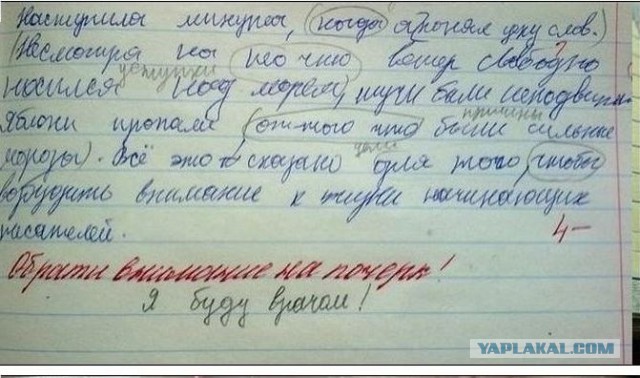 Наступила минута, (когда я понял цену слов.)
(Несмотря на то что ветер свободно
уступки
носился над морем), тучи были неподвижны
причины
Яблони пропали, (оттого что были сильные
цели
морозы). Всё это сказано для того, чтобы
возбудить внимание к жизни начинающих
писателей.
4-
Обрати внимание на почерк!
Я буду врачом!
YAPLAKAL.COM